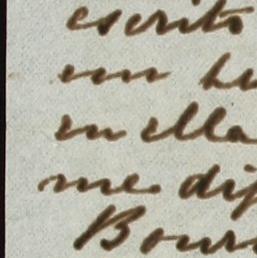 escrito
en
en ella
me dij
Bour